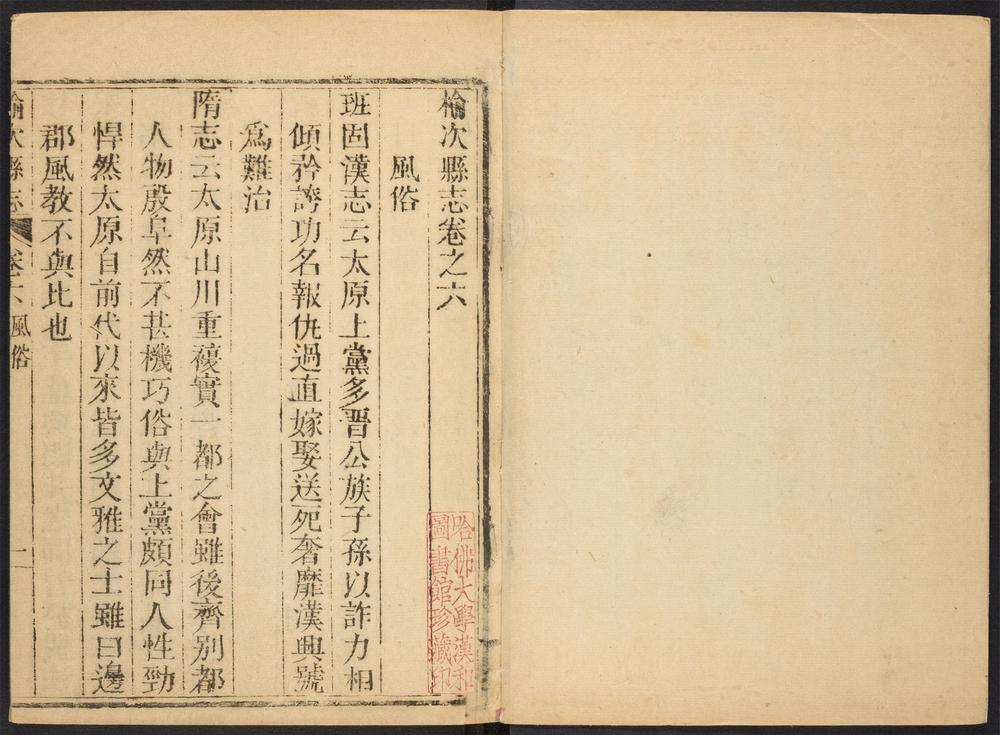 榆次縣志卷之六
風俗
班固漢志云太原上黨多晋公族子孫以詐力相
傾矜誇功名報仇過直嫁娶送死奢靡漢興號
爲難治
隋志云太原山川重複實一都之會雖後齊別都
人物殷阜然不甚機巧俗與上黨頗同人性勁
悍然太原自前代以來皆多文雅之士雖曰邊
郡風教不與比也
榆次縣志 卷之六 風俗 一
哈佛大學漢和
圖書館珍藏印